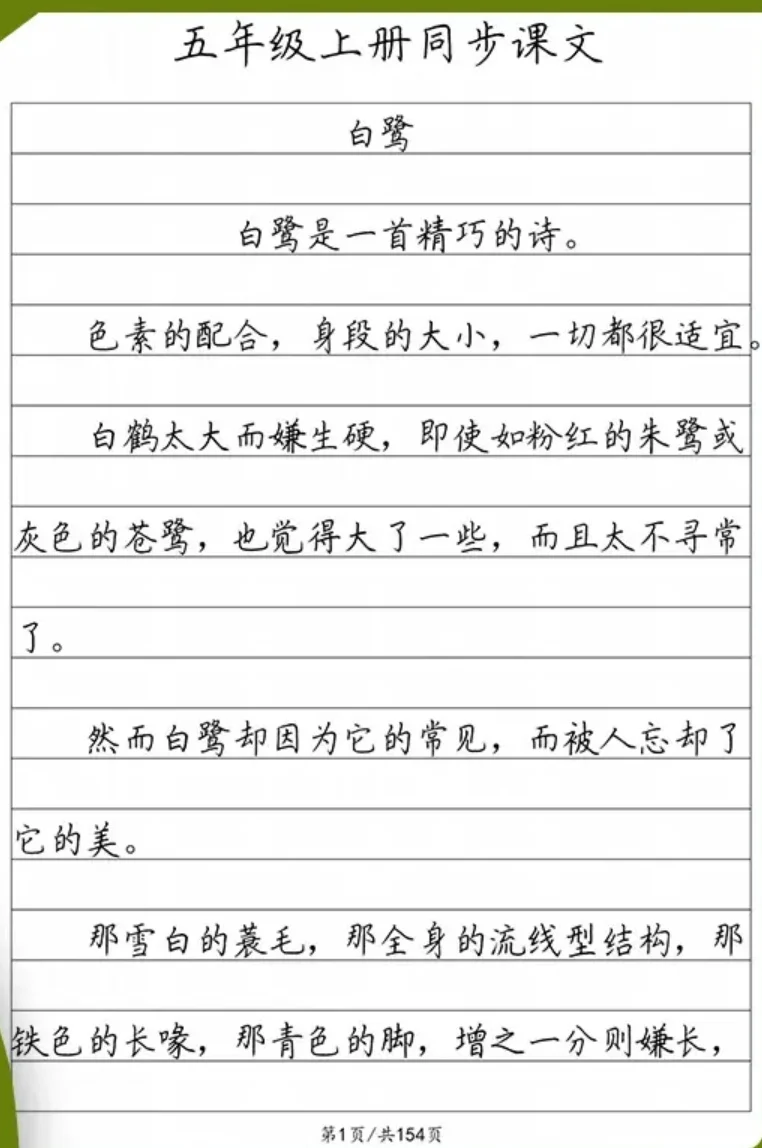 五年级上册同步课文
白鹭
白鹭是一首精巧的诗。
色素的配合，身段的大小，一切都很适宜。
白鹤太大而嫌生硬，即使如粉红的朱鹭或
灰色的苍鹭，也觉得大了一些，而且太不寻常
了。
然而白鹭却因为它的常见，而被人忘却了
它的美。
那雪白的蓑毛，那全身的流线型结构，那
铁色的长喙，那青色的脚，增之一分则嫌长，
第1页/共154页